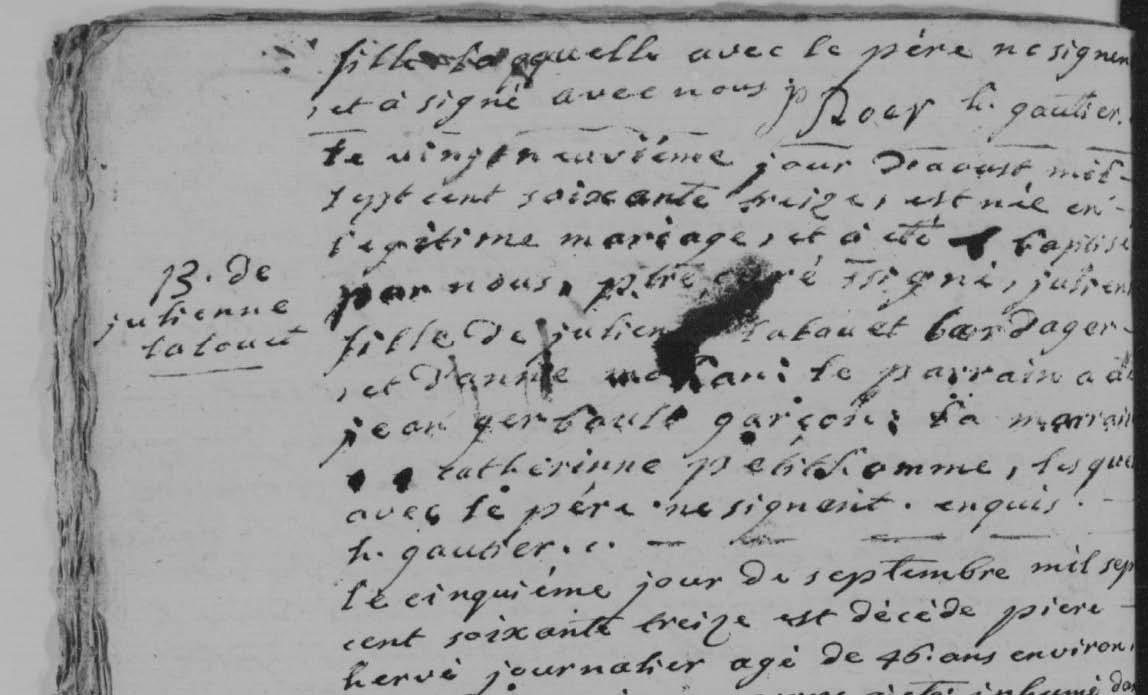 fille laquelle avec le pére ne signent
et à signé avec nous p Roer h. gautier.
le vingtneuviéme jour d'aoust mil
sept cent soixante treize, est née en
legitime mariage, et à eté baptisé
par nous, ptre curé ssigné, julien
B. de
julienne
latouet
fille de julien latouet bordager
et d'anne le parrain a
jean gerbault garçon; la marrain
catherinne petithomme, lesquel
avec le pére ne signent. enquis.
h. gautier. c.
le cinquiéme jour de septembre mil sep
cent soixante treize est décédé piere
hervé journalier agé de 46. ans environ